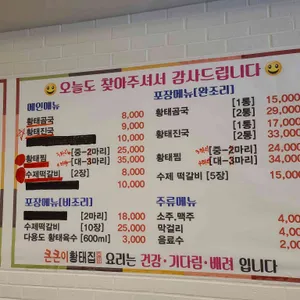 오늘도 찾아주셔서 감사드립니다
메인메뉴
황태곰국 8,000
황태진국 9,000
10,000
황태찜 [중-2마리] 25,000
[대-3마리] 35,000
수제떡갈비 [2장] 8,000
10,000
포장메뉴(비조리)
[2마리] 18,000
수제떡갈비 [10장] 25,000
다용도 황태육수 [600ml] 3,000
포장메뉴[완조리]
황태곰국 [1통] 15,000
[2통] 29,000
황태진국 [1통] 17,000
[2통] 33,000
황태찜 [중-2마리] 24,000
[대-3마리] 34,000
수제 떡갈비 [5장] 15,000
주류메뉴
소주,맥주 4,000
막걸리 4,000
음료수 2,000
큰큰이황태집 요리는 건강·기다림·배려 입니다